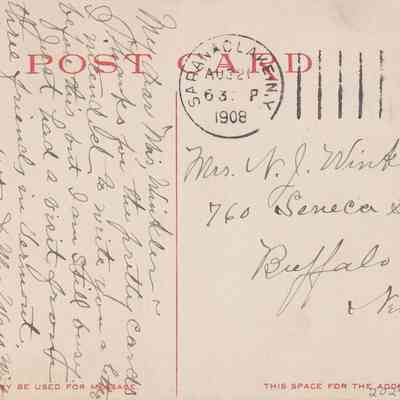 POST CARD
SARANAC LAKE, N.Y.
AUG 21
6 3- P
1908
My dear Mrs Winkler ~
Thanks for the pretty cards
I intended to write you a
before this, but I am still busy.
Just had a visit from
three friends in Vermont.
Mrs. N. J. Wink
760 Seneca S
Buffalo
Ne
Y BE USED FOR MESSAGE
THIS SPACE FOR THE ADD
202